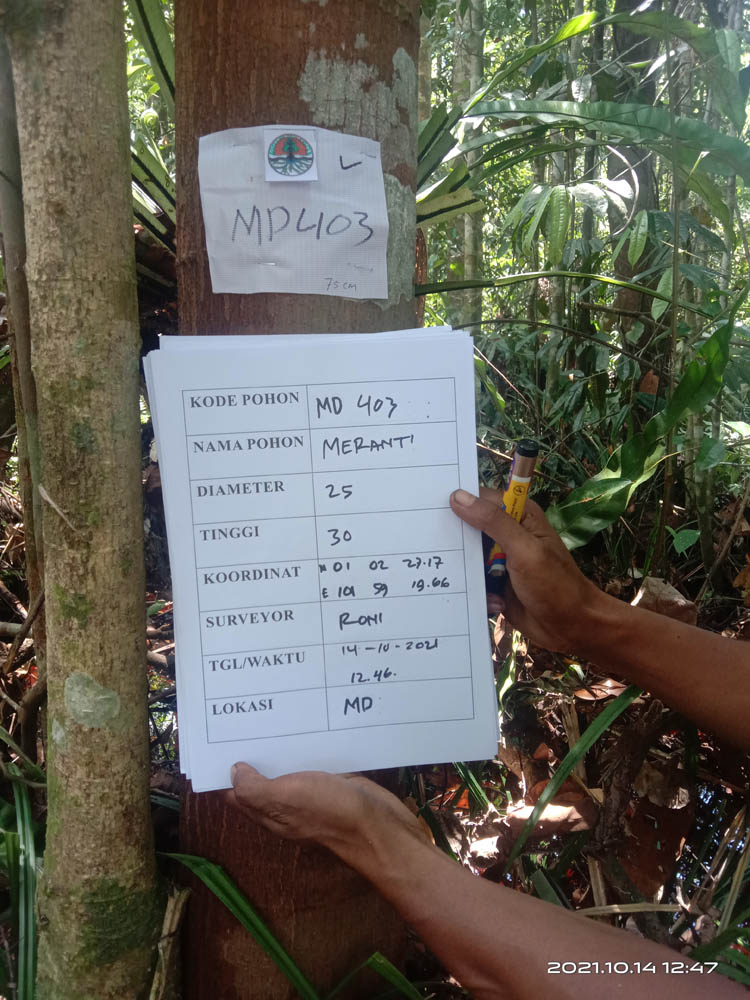 MD403
75 CM
KODE POHON MD 403
NAMA POHON MERANTI
DIAMETER 25
TINGGI 30
KOORDINAT N 01 02 27.17
E 101 59 19.66
SURVEYOR RONI
TGL/WAKTU 14-10-2021
12.46.
LOKASI MD
2021.10.14 12:47